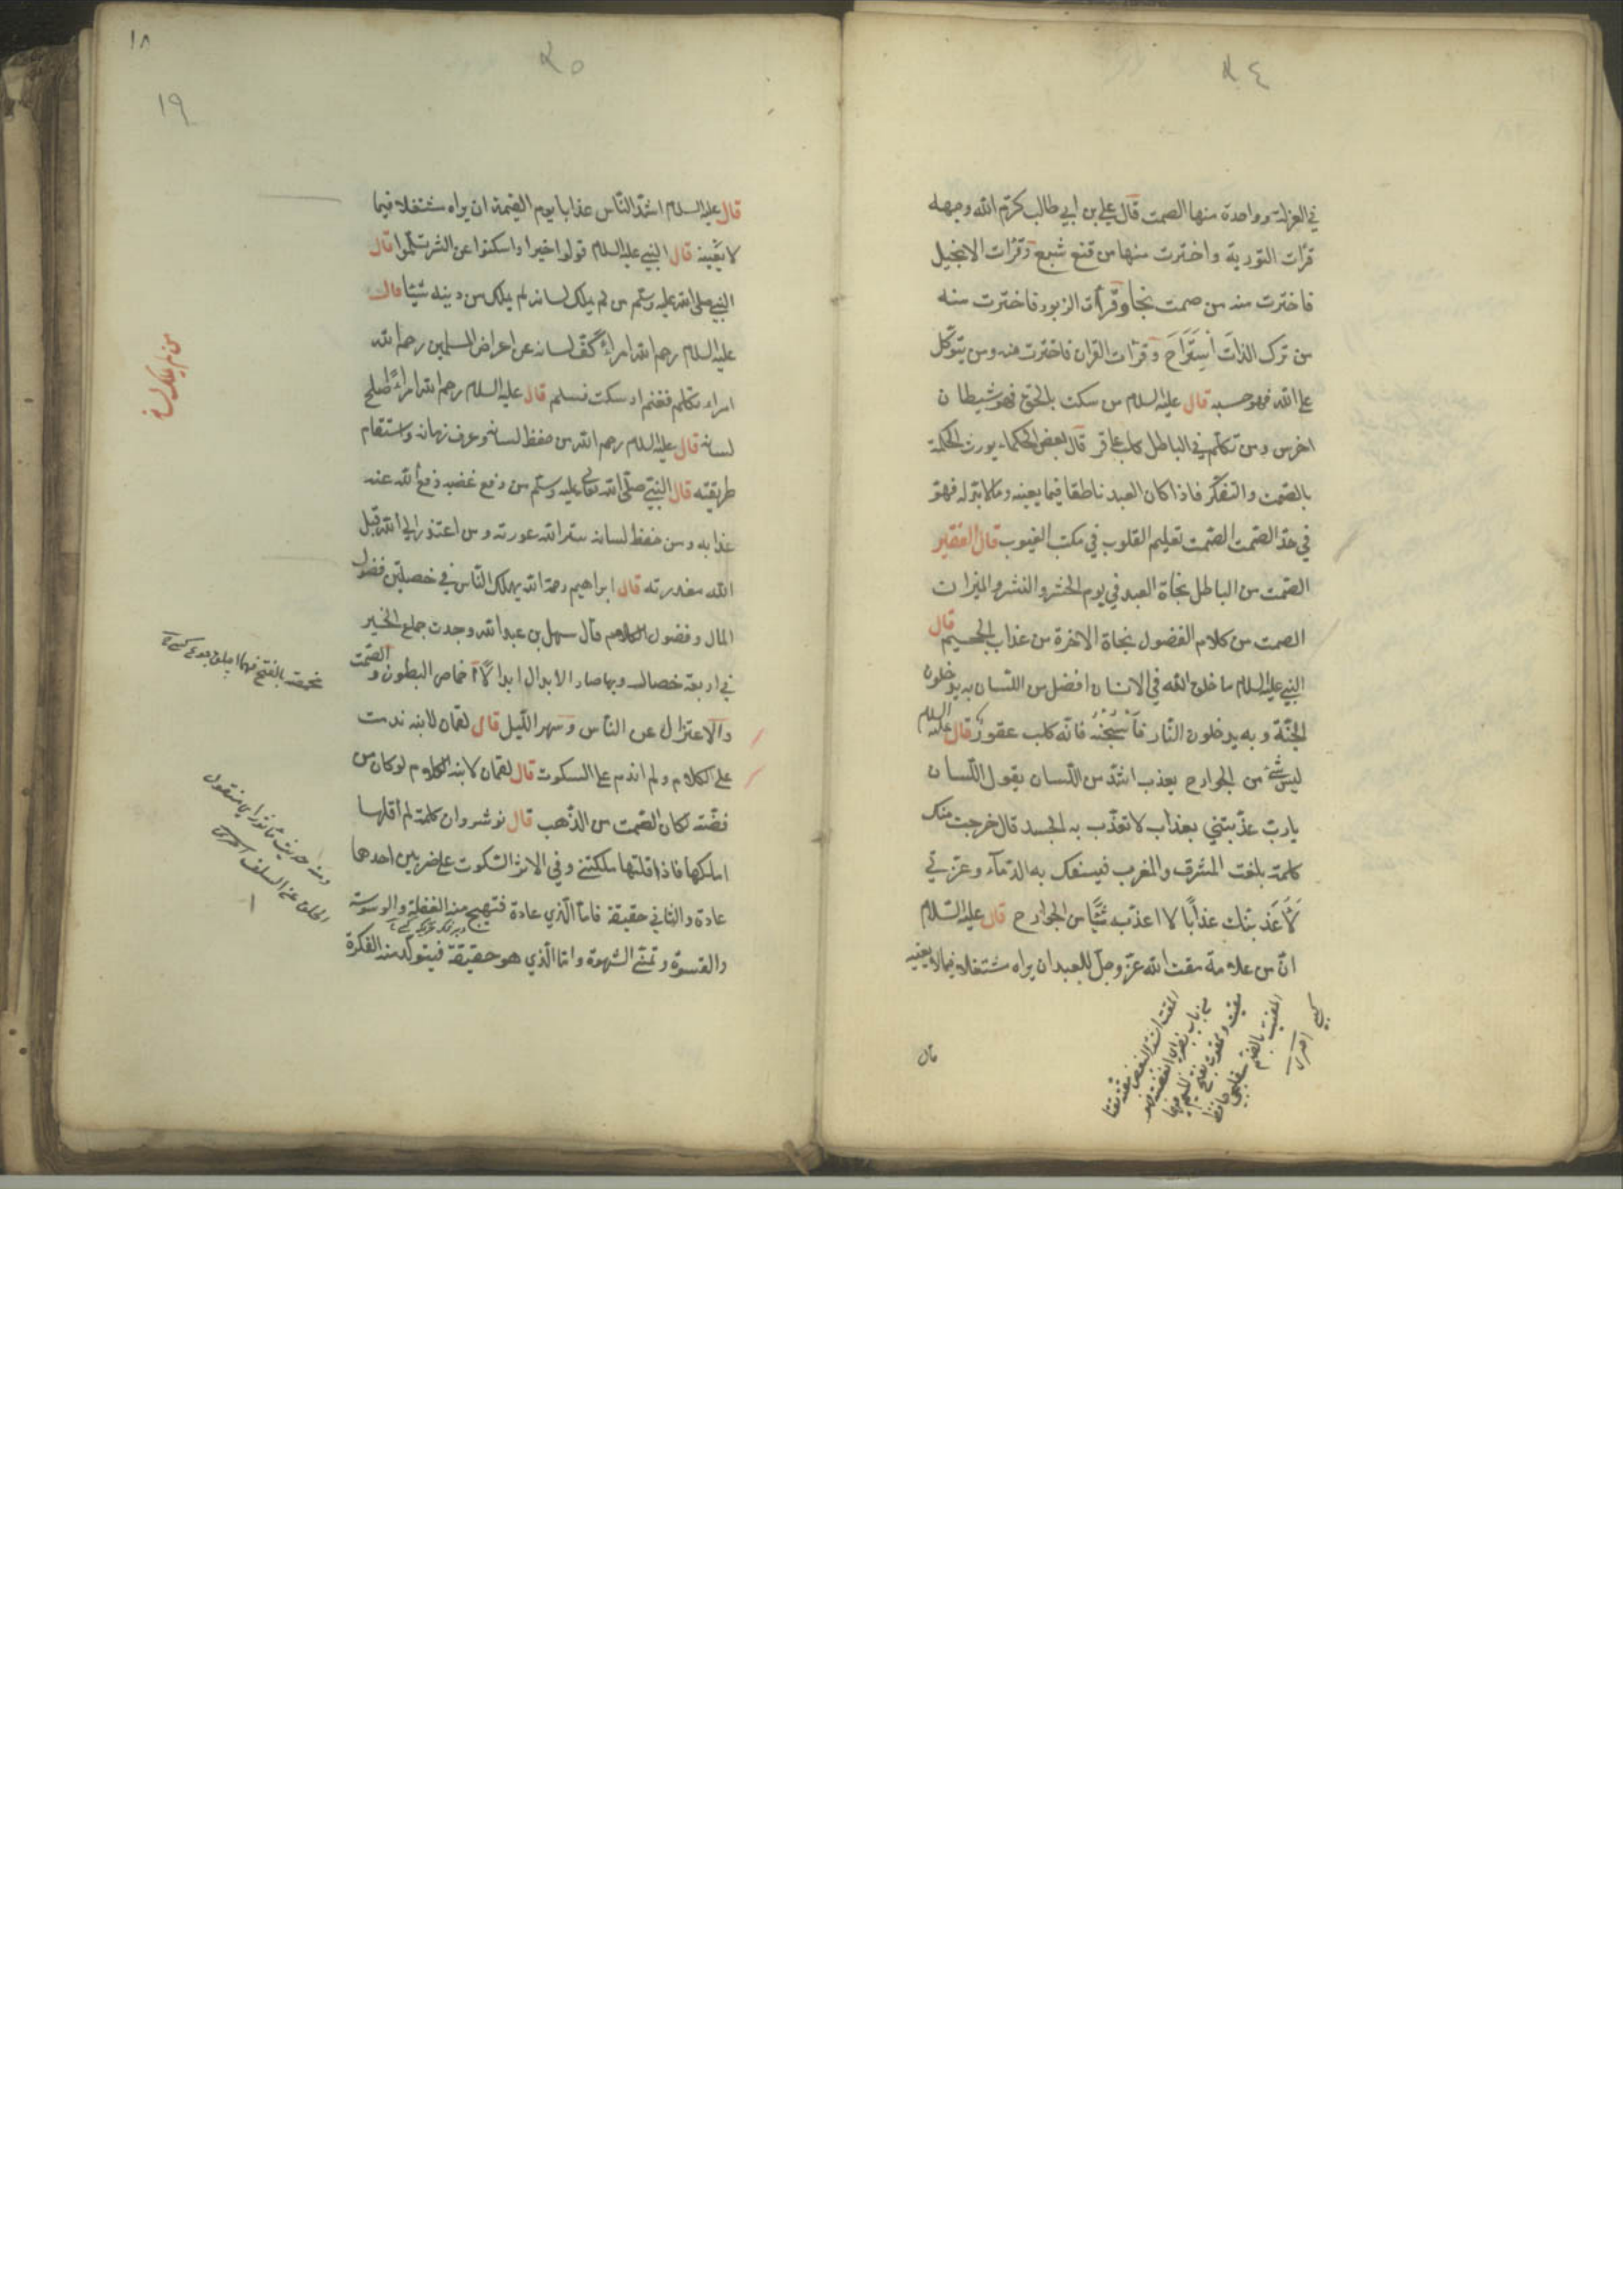 في العزلة وواحدة منها الصمت قال علي بن ابي طالب كرّم الله وجهه
قرأت التورية واخترت منها من قنع شبع وقرأت الانجيل
فاخترت منه من صمت نجا وقرأت الزبور فاخترت منه
من ترك الذات اِستَرَاحَ وقرأت القران فاخترت منه ومن يتوكّل
على الله فهو حسبه قال عليه السلام من سكت بالحق فهو شيطان
اخرس ومن تكلّم في الباطل كلب عاقر قال بعض الحكماء يورث الحكمة
بالصّمت والتفكّر فاذا كان العبد ناطقا فيما يعينه وما لا بدّ له فهو
في حدّ الصّمت الصّمت تعليم القلوب في مكتب الغيوب قال الفقير
الصّمت من الباطل نجاة العبد في يوم الحشر والنشر والميزان
الصمت من كلام الفضول نجاة الاخرة من عذاب الجحيم قال
النبي عليه السلام ما خلق الله في الانسان افضل من اللسان به يدخلون
الجنّة وبه يدخلون النّار فاسجنه فانّه كلب عقور قال عليه السلام
ليس شئ من الجوارح يعذب اشدّ من اللّسان يقول اللّسان
يا ربّ عذّبتني بعذاب لا تعذّب به الجسد قال خرجت منك
كلمة بلغت المشرق والمغرب فيسفك به الدّماء وعزّتي
لَأُعَذّبنّك عذابًا لا اعذّب شيًا من الجوارح قال عليه السّلام
انّ من علامة مقت الله عزّ وجلّ للعبد ان يراه مشتغلا فيما لا يعنيه
قال
١٨
١٩
قال عليه السلام اشدّ النّاس عذابا يوم القيمة ان يراه مشتغلا فيما
لا يعنيه قال النبي عليه السلام قولوا خيرا واسكتوا عن الشر تسلموا قال
النبي صلى الله عليه وسلّم من لم يملك لسانه لم يملك من دينه شيئا قال
عليه السلام رحم الله امراءً كفّ لسانه عن اعراض المسلمين رحم الله
امراء تكلم فغنم او سكت فسلم قال عليه السلام رحم الله امراءً اصلح
لسانه قال عليه السلام رحم الله من حفظ لسانه وعرف زمانه واستقام
طريقته قال النبي صلّى الله تعالى عليه وسلّم من دفع غضبه دفع الله عنه
عذابه ومن حفظ لسانه ستر الله عورته ومن اعتذر الى الله قبل
الله معذرته قال ابراهيم رحمة الله يهلك النّاس في خصلتين فضول
المال وفضول الكلام قال سهل بن عبد الله وجدت جمع الخير
في اربعة خصال وبها صار الابدال ابدالًا اخماص البطون والصّمت
والاعتزال عن النّاس وسهر اللّيل قال لقمان لابنه ندمت
على الكلام ولم اندم على السكوت قال لقمان لابنه الكلام لو كان من
فضّة لكان الصّمت من الذّهب قال نوشروان كلمة لم اقلها
املكها فاذا قلتها ملكتني وفي الاثر السّكوت على ضربين احدهما
عادة والثاني حقيقة فامّا الّذي عادة فتهيج منه الغفلة والوسوسة
والقسوة وتمنّي الشهوة وامّا الّذي هو حقيقة فيتولّد منه الفكرة
من لم يملك لسانه